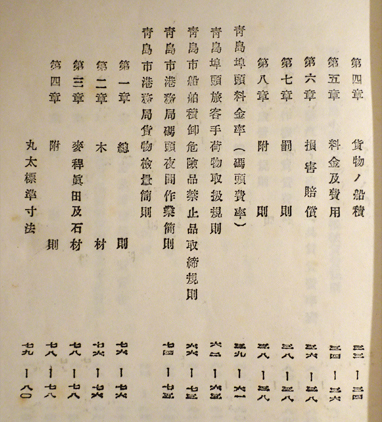 第四章 貨物ノ船積
第五章 料金及費用
第六章 損害賠償
第七章 罰則
第八章 附則 三八―三八
青島埠頭料金率(碼頭費率) 三九―六一
青島埠頭旅客手荷物取扱規則
青島市船舶積卸危險品禁止品取締規則
青島市港務局碼頭夜間作業簡則
青島市港務局貨物檢量簡則
第一章 總則 七六―七六
第二章 木材
第三章 麥稈眞田及石材 七八―七八
第四章 附則 七八―七八
丸太標準寸法 七九―八〇